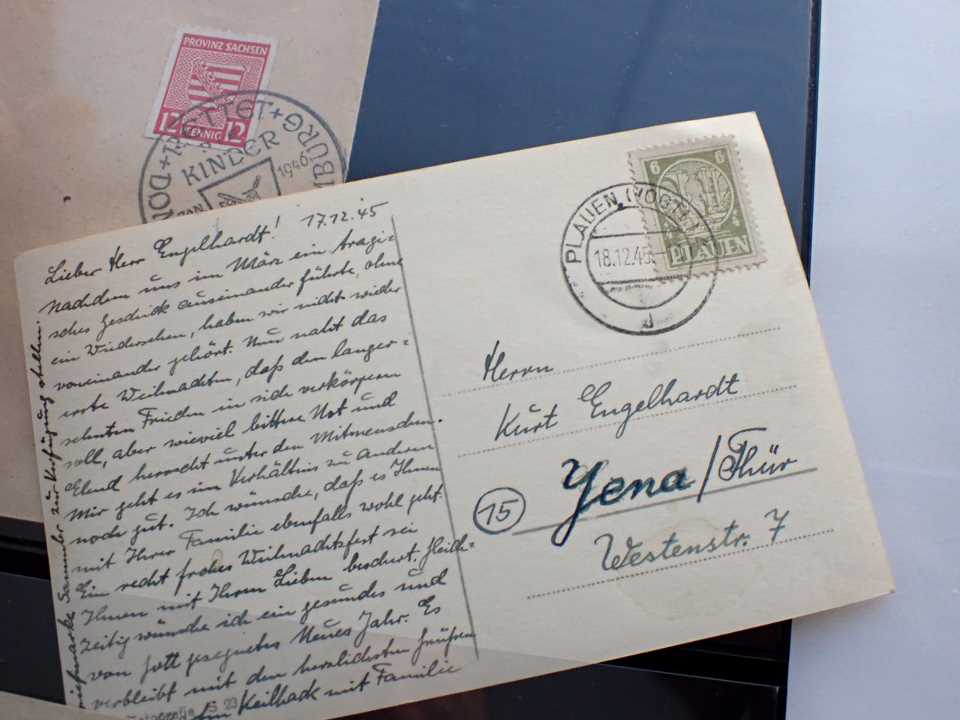 PROVINZ SACHSEN
12 PFENNIG 12
KINDER
1946
Lieber Herr Engelhardt! 17.12.45
Nachdem uns im März ein tragi=
sches Geschick auseinander führte, ohne
ein Wiedersehen, haben wir nicht wieder
voneinander gehört. Nun naht das
erste Weihnachten, daß den langer=
sehnten Frieden in sich verkörpern
soll, aber wieviel bittere Not und
Elend herrscht unter den Mitmenschen.
Mir geht es im Verhältnis zu anderen
noch gut. Ich wünsche, daß es Ihnen
mit Ihrer Familie ebenfalls wohl geht.
Ein recht frohes Weihnachtsfest sei
Ihnen mit Ihren Lieben beschert. Gleich=
zeitig wünsche ich ein gesundes und
von Gott gesegnetes Neues Jahr. Es
verbleibt mit den herzlichsten Grüßen
Keilhack mit Familie
Sammler zur Verfügung stellen.
S 23
6 6
PLAUEN
PLAUEN (VOGTL)
18.12.45
d
Herrn
Kurt Engelhardt
15 Jena/Thür
Westenstr. 7